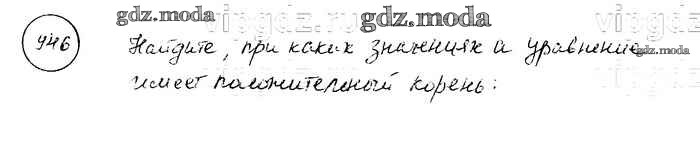 gdz.moda
vipgdz.moda
gdz.moda
946
Найдите, при каких значениях а уравнение
gdz.moda
имеет положительный корень: